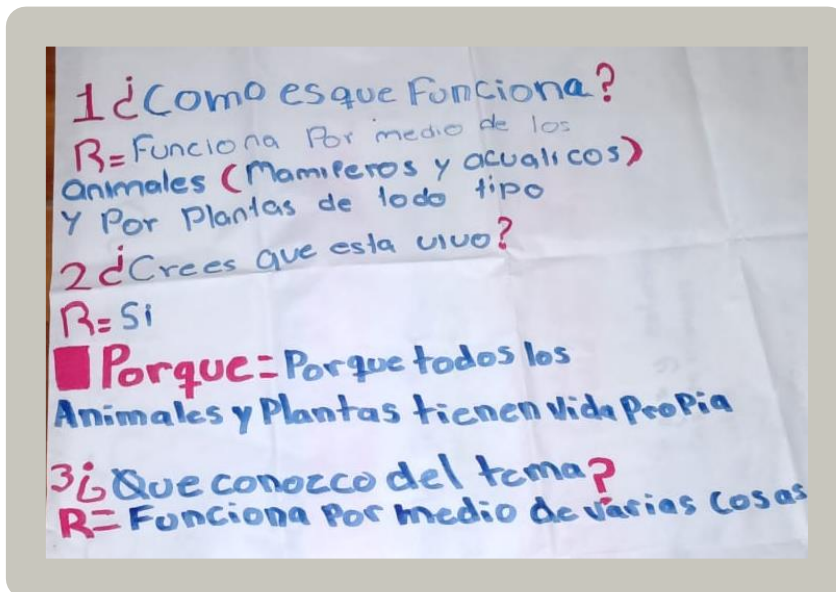 1 ¿Como es que Funciona?
R= Funciona Por medio de los
animales (Mamiferos y acuaticos)
y Por Plantas de todo tipo
2 ¿Crees que esta vivo?
R= Si
Porque= Porque todos los
Animales y Plantas tienen vida Propia
3 ¿Que conozco del tema?
R= Funciona Por medio de varias Cosas